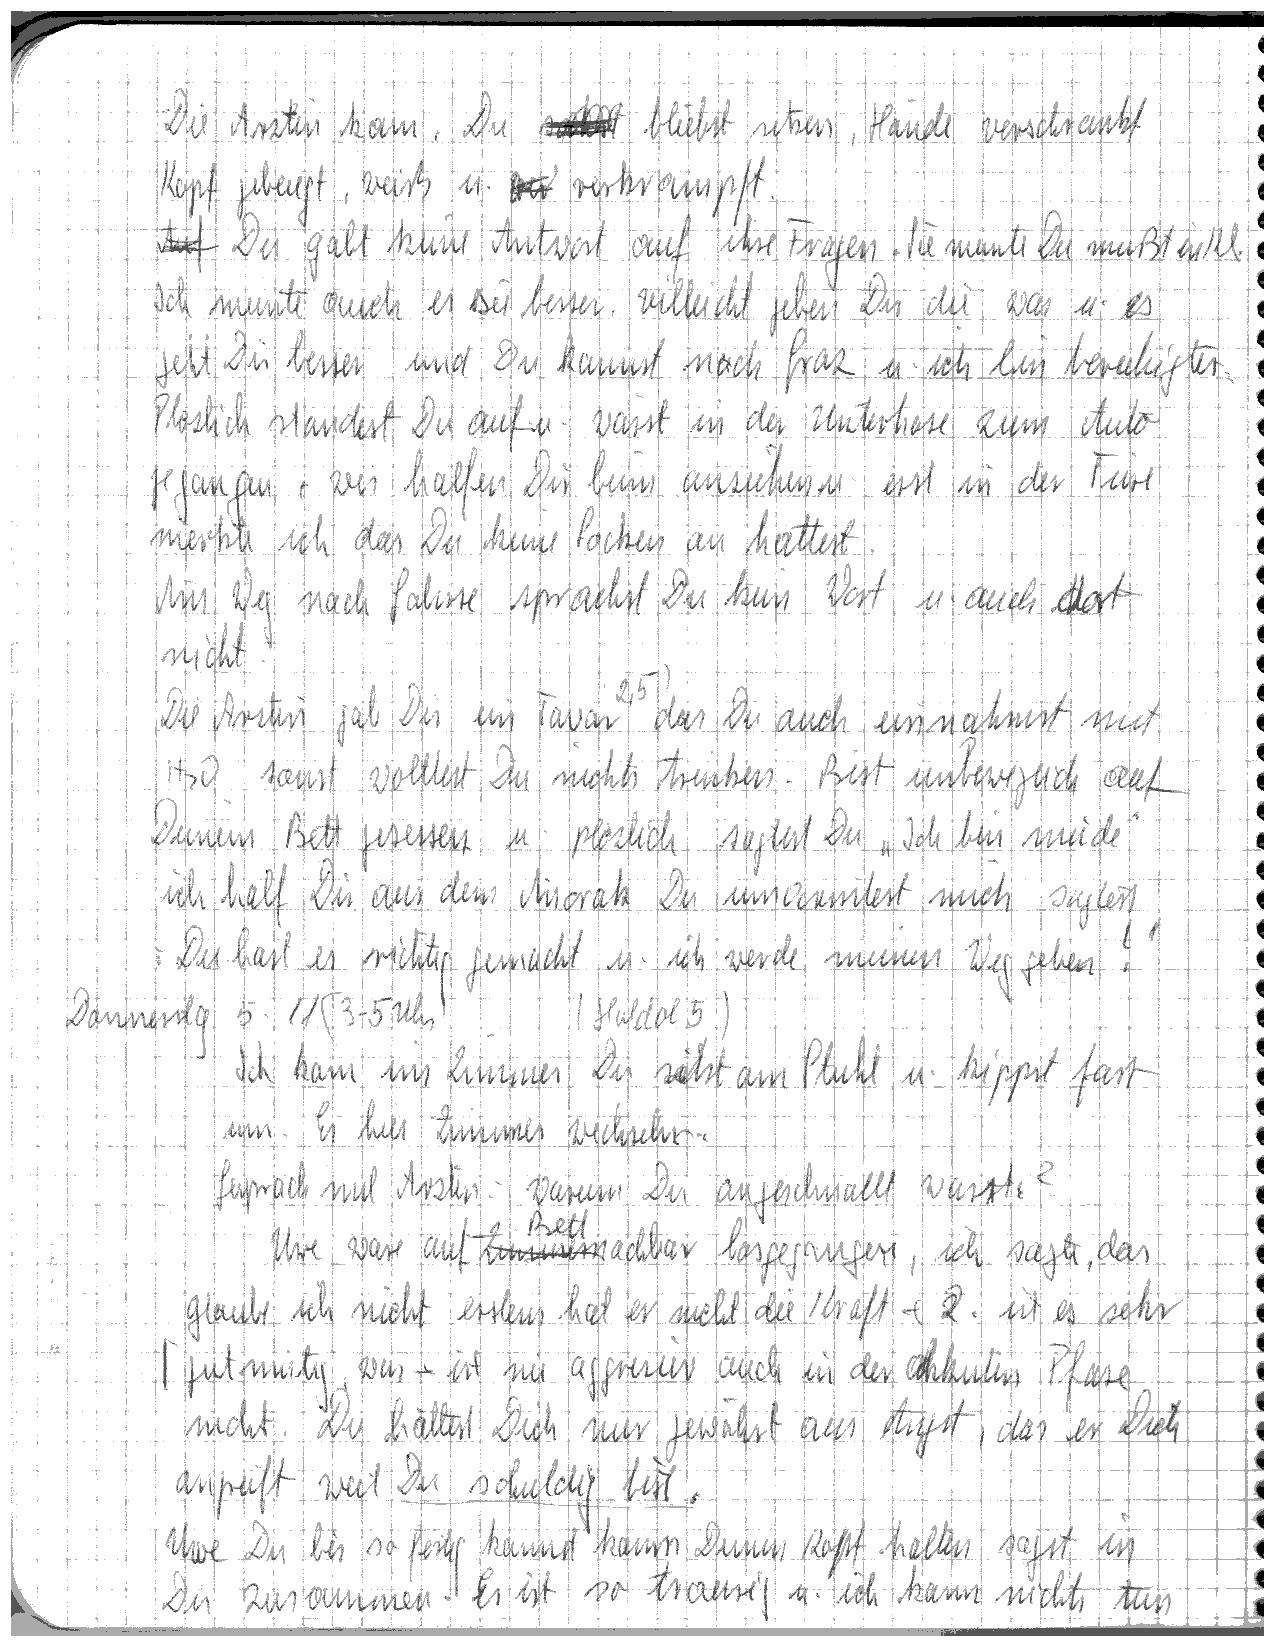 Die Arztin kam, Du bliebst sitzen, Hände verschrankt
Kopf gebeugt, weiß u. verkrampft.
Auf Du gabt keine Antwort auf ihre Fragen. Sie meinte Du mußt in Kl.
Ich meinte auch es sei besser. villeicht geben Dir die was u. es
geht Dir besser und Du kannst nach Graz u. ich bin beruhigter.
Plözlich standest Du auf u. warst in der Unterhose zum Auto
gegangen. wir halfen Dir beim anziehen u erst in der Türe
merkte ich das Du keine Socken an hattest.
Am Weg nach sprachst Du kein Wort u. auch dort
nicht.
Die Arztin gab Dir ein Tavor 2,5 das Du auch einnahmst mit
H2O sonst wolltest Du nichts trinken. Bist unbeweglich auf
Deinem Bett gesessen u. plözlich sagtest Du „Ich bin müde"
ich half Dir aus dem Anorak Du umarmtest mich sagtest
: Du hast es richtig gemacht u. ich werde meinen Weg gehen!"
Donnerstg 5. 11 (3-5 Uhr) (Haldol 5)
Ich kam ins Zimmer Du sitzt am Stuhl u. kippst fast
um. Es hies Zimmer wechseln.
Gesprach mit Arztin. warum Du angeschnallt warst.?
Uwe ware auf Zimmernachbar Bett losgegangen, ich sagte, das
glaube ich nicht erstens hat er nicht die Kraft + 2. ist es sehr
gutmutig, war + ist nie aggresiv auch in der ahkuten Pfase
nicht. Du hättest Dich nur gewährt aus Angst, das er Dich
angreift weil Du schuldig bist.
Uwe Du bis so fertig kannst kaum Deinen Kopf halten sagst in
Dir zusammen. Es ist so traurig u. ich kann nichts tun